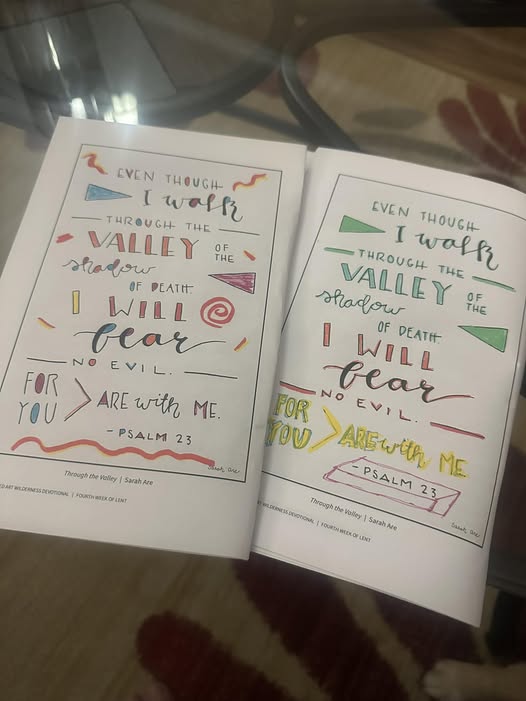 EVEN THOUGH
I walk
THROUGH THE
VALLEY OF THE
shadow
OF DEATH
I WILL
fear
NO EVIL.
FOR YOU > ARE with ME.
- PSALM 23
Sarah Are
Through the Valley | Sarah Are
ART WILDERNESS DEVOTIONAL | FOURTH WEEK OF LENT
EVEN THOUGH
I walk
THROUGH THE
VALLEY OF THE
shadow
OF DEATH
I WILL
fear
NO EVIL.
FOR YOU > ARE with ME
- PSALM 23
Sarah Are
Through the Valley | Sarah Are
WILDERNESS DEVOTIONAL | FOURTH WEEK OF LENT